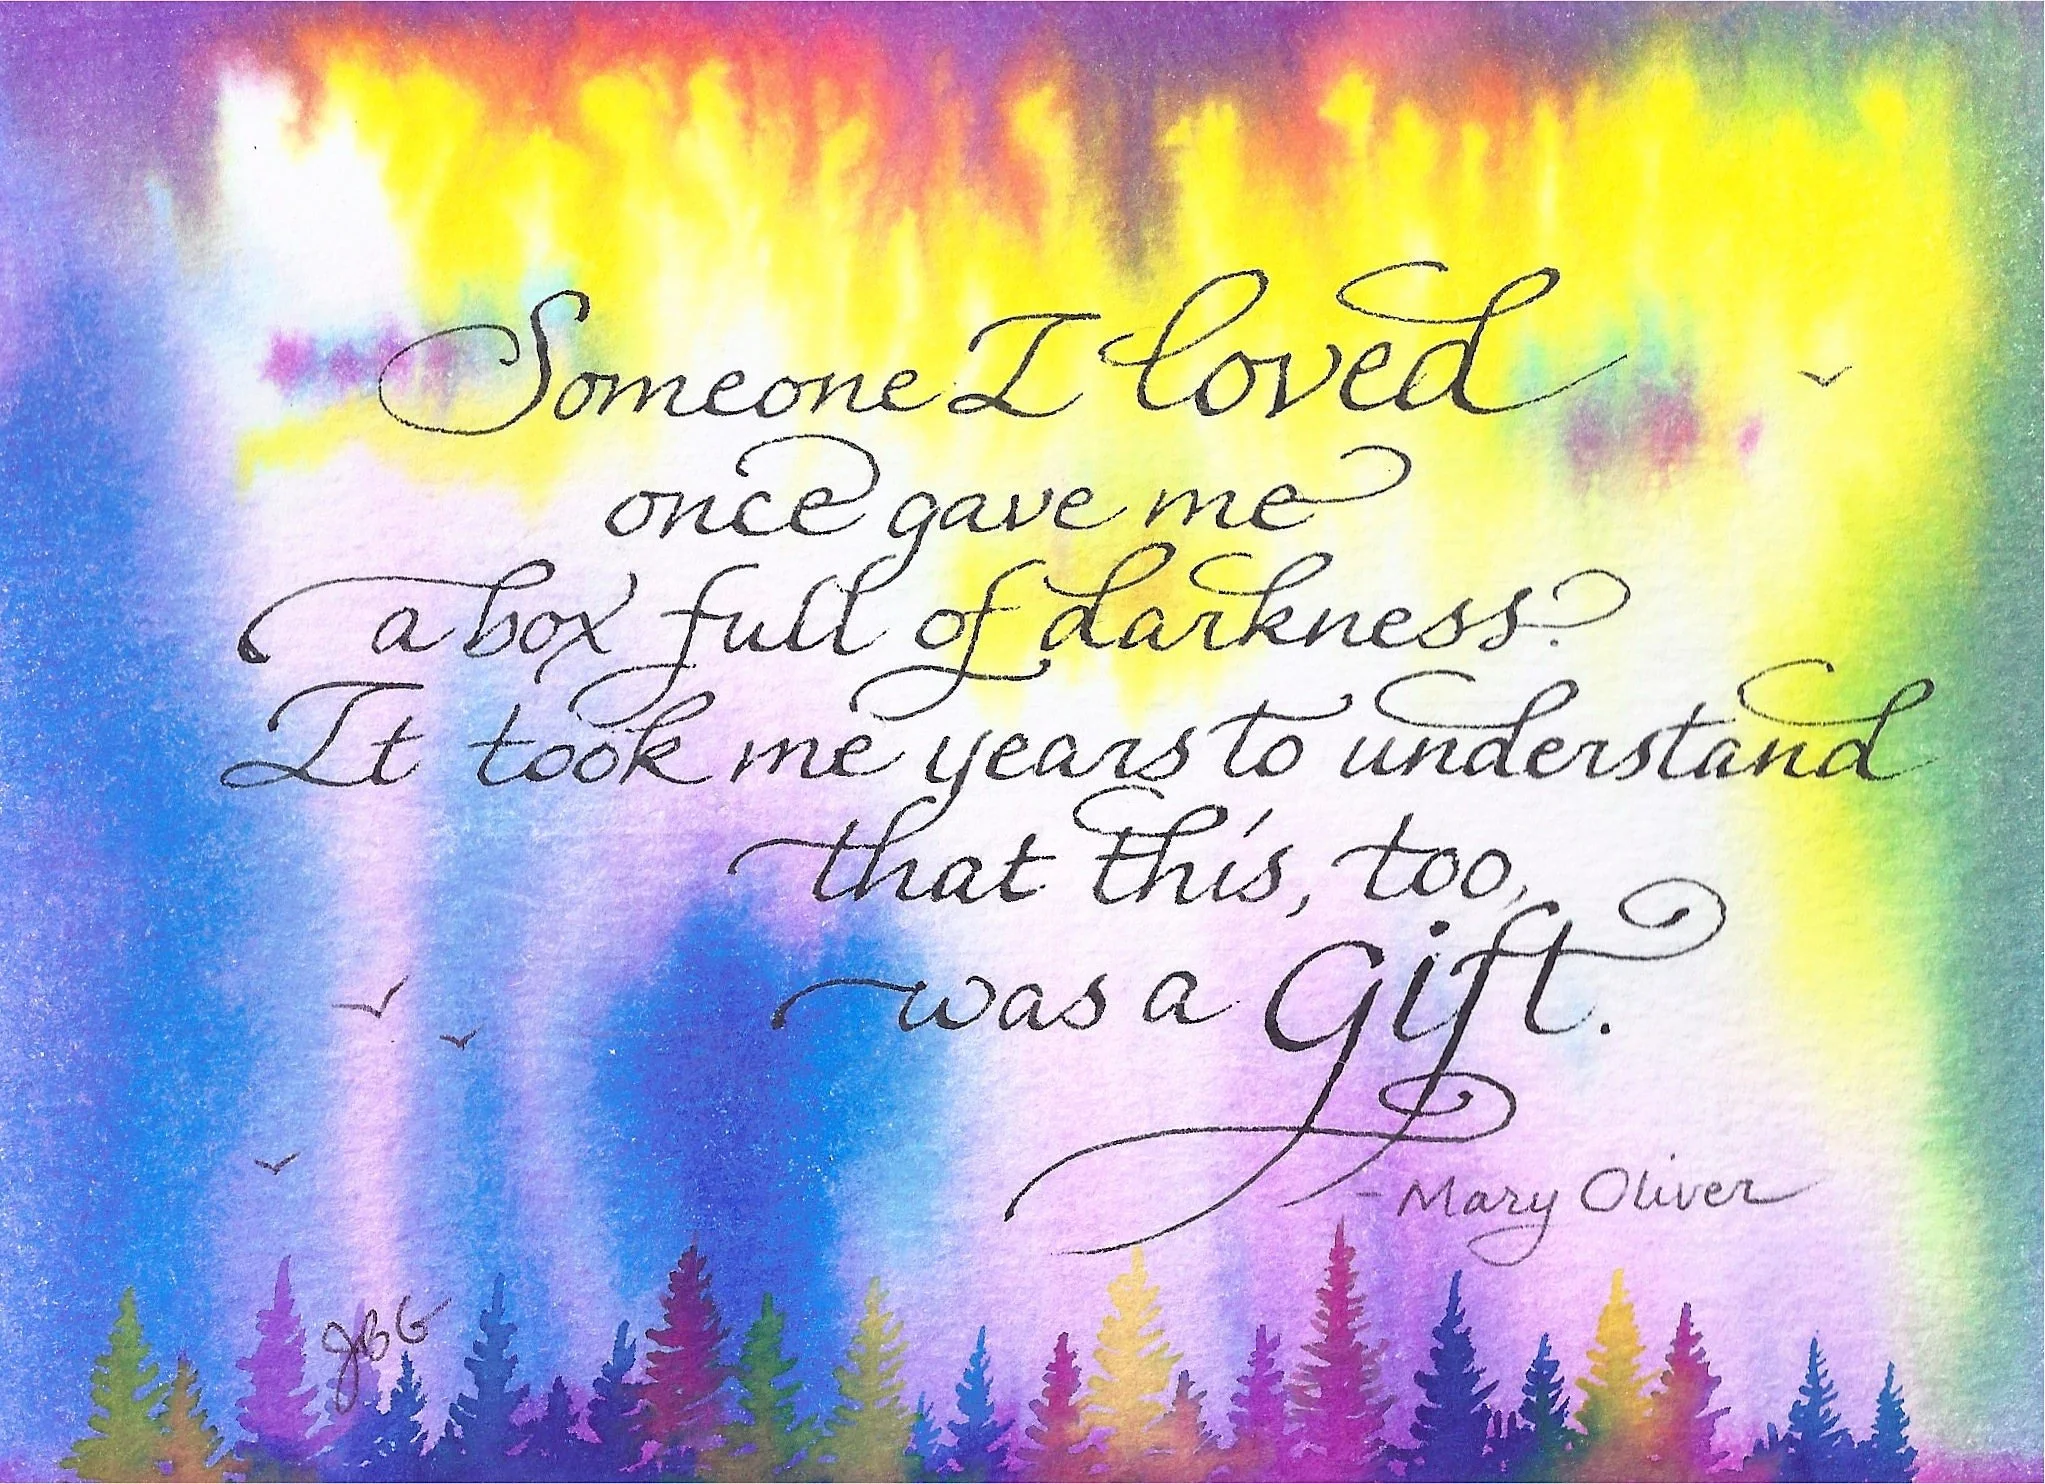 Someone I loved
once gave me
a box full of darkness?
It took me years to understand
that this, too,
was a Gift.
- Mary Oliver
JBG